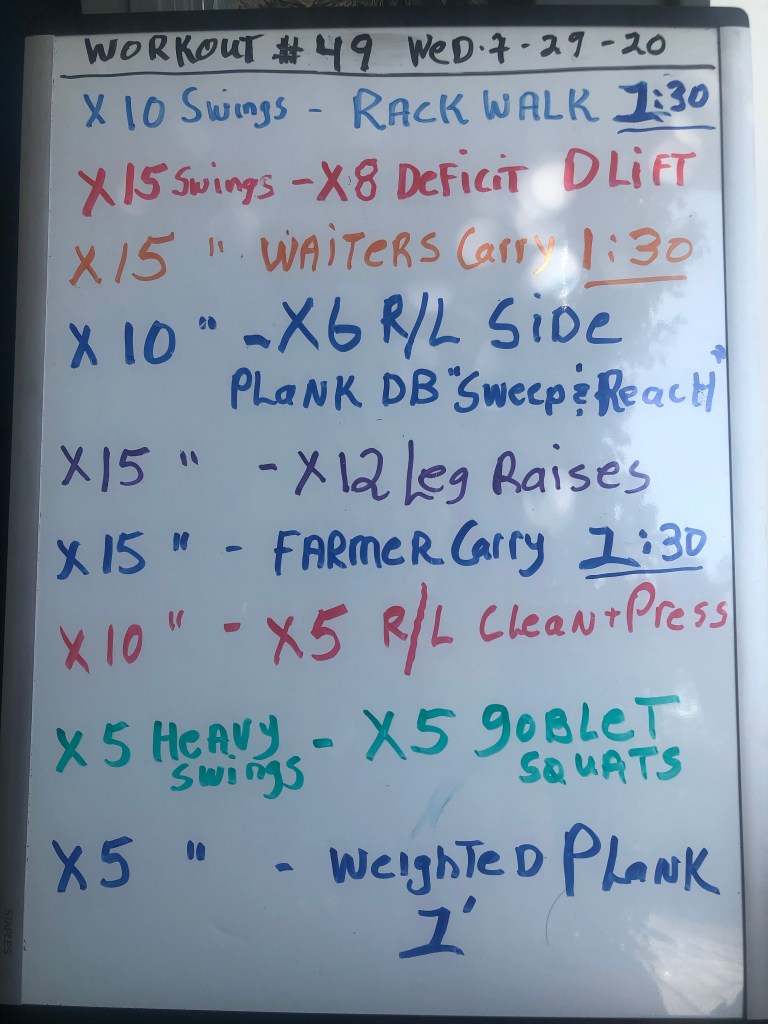 WORKOUT # 49 WED. 7-29-20
X 10 Swings - RACK WALK 1:30
X15 Swings - X8 DEFiCiT DLiFT
X 15 " WAITERS Carry 1:30
X 10 " - X6 R/L SiDe
PLANK DB "Sweep & Reach"
X15 " - X12 Leg Raises
X 15 " - FARMER Carry 1:30
X10 " - X5 R/L Clean + Press
X 5 HEAVY - X5 gOBLET
Swings SQUATS
X5 " - WeighTED PLANK
1'
STAPLES